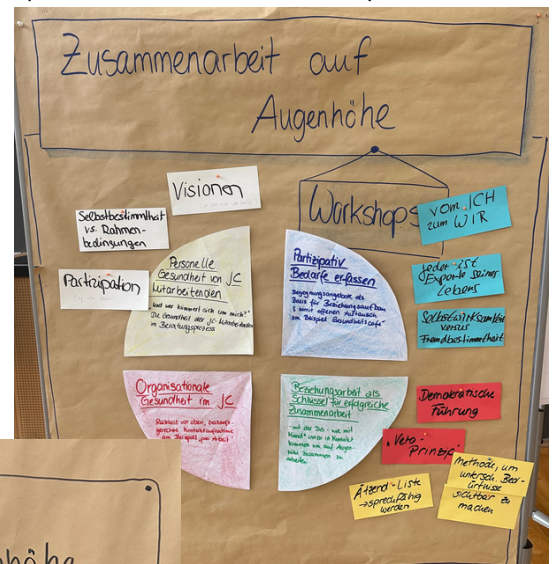 Zusammenarbeit auf
Augenhöhe
Workshops
Visionen
Selbstbestimmtheit
vs. Rahmen-
bedingungen
Partizipation
Personelle
Gesundheit von JC
Mitarbeitenden
"und wer kümmert sich um mich?"
Die Gesundheit der JC-Mitarbeitenden
im Beratungsprozess
Partizipativ
Bedarfe erfassen
Begegnungsangebote als
Basis für Beziehungsaufbau
& mit offenem Austausch
am Beispiel Gesundheitscafé
Organisationale
Gesundheit im JC
Rückhalt von oben,
gerechte Kontaktaufnahme
am Beispiel
Beziehungsarbeit als
Schlüssel für erfolgreiche
Zusammenarbeit
mit der Tür - wie mit
Kund*innen in Kontakt
kommen um auf Augen-
höhe zusammen zu
arbeiten
vom ICH
zum WIR
Jeder ist
Experte seines
Lebens
Selbstwirksamkeit
versus
Fremdbestimmtheit
Demokratische
Führung
"Veto-
Prinzip"
Ätzend-Liste
→ sprechfähig
werden
Methode, um
untersch. Bed-
ürfnisse
sichtbar zu
machen